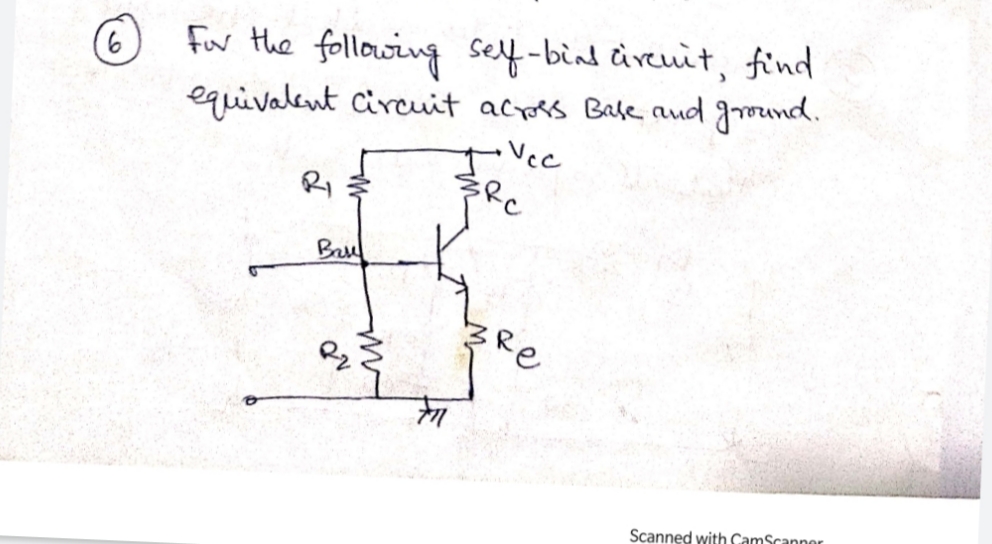 6 For the following self-bias circuit, find
equivalent circuit across Base and ground.
Vcc
R1
Rc
Base
R2
Re
Scanned with CamScanner